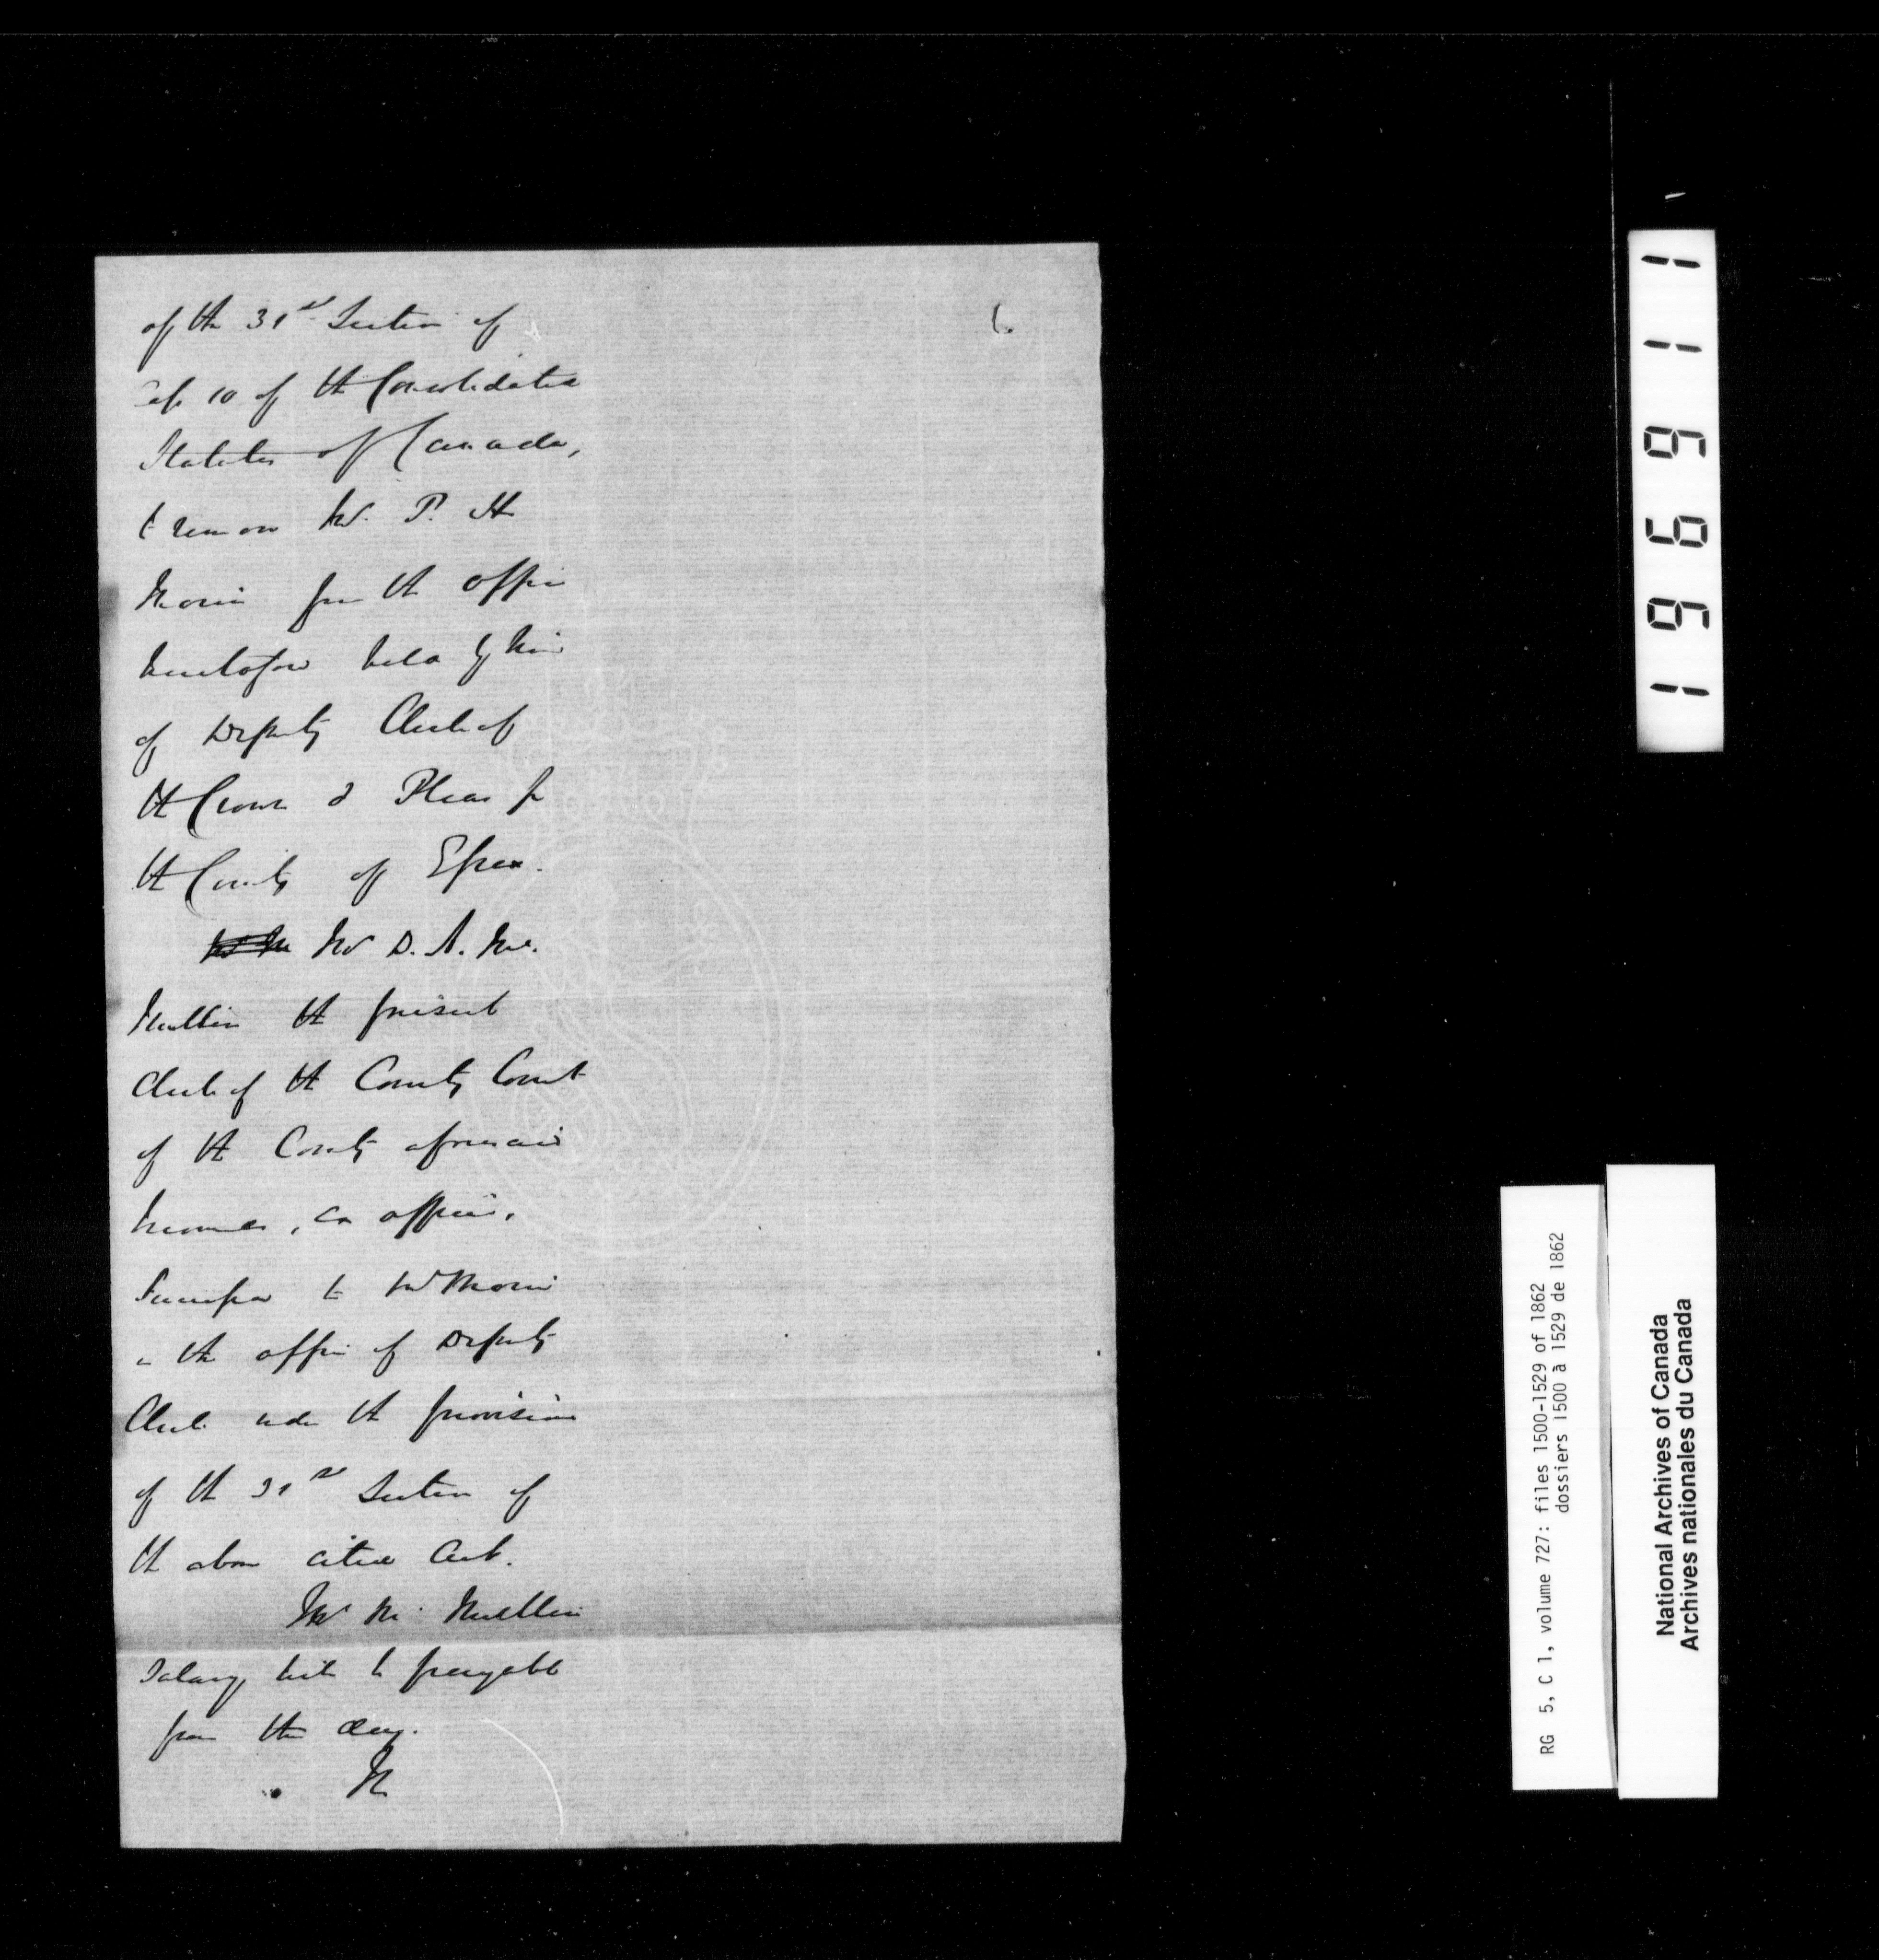 of the 31st Section of
Cap 10 of the Consolidated
Statutes of Canada,
to remove Mr. P. H
Morin from the office
heretofore held by him
of Deputy Clerk of
the Crown & Pleas for
the County of Essex.
Mr D. A. Mc.
Mullin the present
Clerk of the County Court
of the County aforesaid
becomes, ex officio,
Successor to Mr Morin
in the office of Deputy
Clerk under the provisions
of the 31st Section of
the above cited Act.
Mr Mc Mullin
Salary will be payable
from this day.
6
196911
RG 5, C 1, volume 727: files 1500-1529 of 1862
dossiers 1500 à 1529 de 1862
National Archives of Canada
Archives nationales du Canada